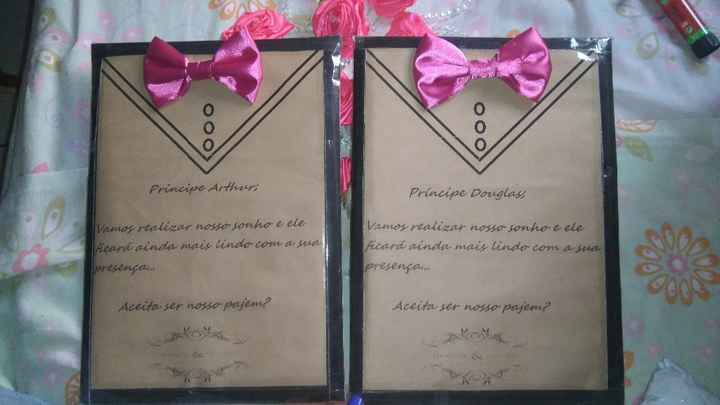 Príncipe Arthur;
Vamos realizar nosso sonho e ele
ficará ainda mais lindo com a sua
presença...
Aceita ser nosso pajem?
&
Príncipe Douglas;
Vamos realizar nosso sonho e ele
ficará ainda mais lindo com a sua
presença...
Aceita ser nosso pajem?
&